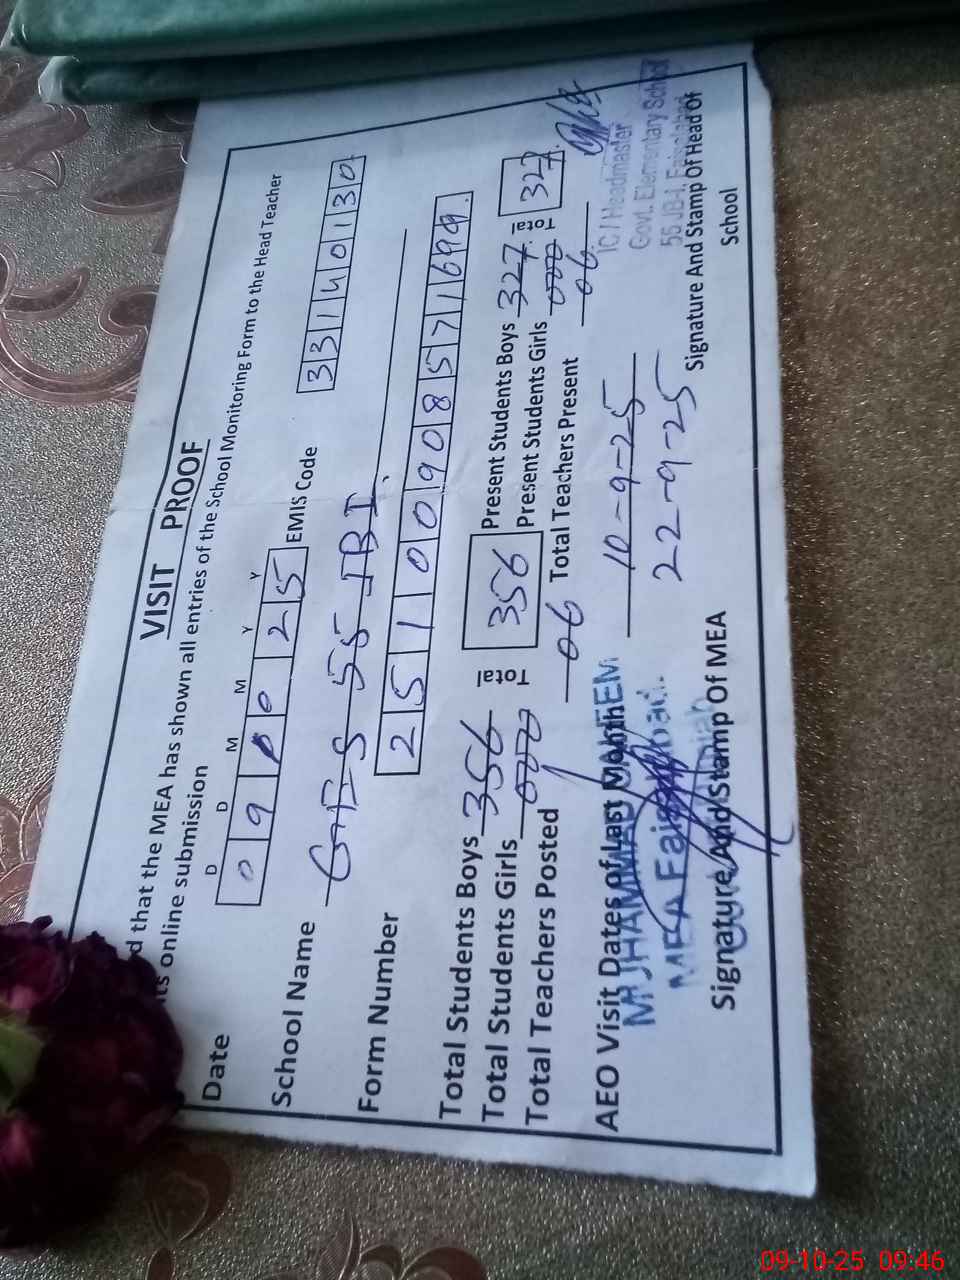 VISIT PROOF
d that the MEA has shown all entries of the School Monitoring Form to the Head Teacher
its online submission
D D M M Y Y
Date 0 9 1 0 2 5 EMIS Code 3 3 1 4 0 1 3 0
School Name 55 JBI
Form Number 2 5 1 0 0 9 0 8 5 7 1 6 9 9
Total Students Boys 356 Total 356 Present Students Boys 327 Total 327
Total Students Girls 000 Present Students Girls 000
Total Teachers Posted 06 Total Teachers Present 06
AEO Visit Dates of Last Month 10-9-25
22-9-25
MEA Faisalabad
IC / Headmaster
Govt. Elementary School
55 JB-I, Faisalabad
Signature And Stamp Of MEA
Signature And Stamp Of Head Of
School
09-10-25 09:46